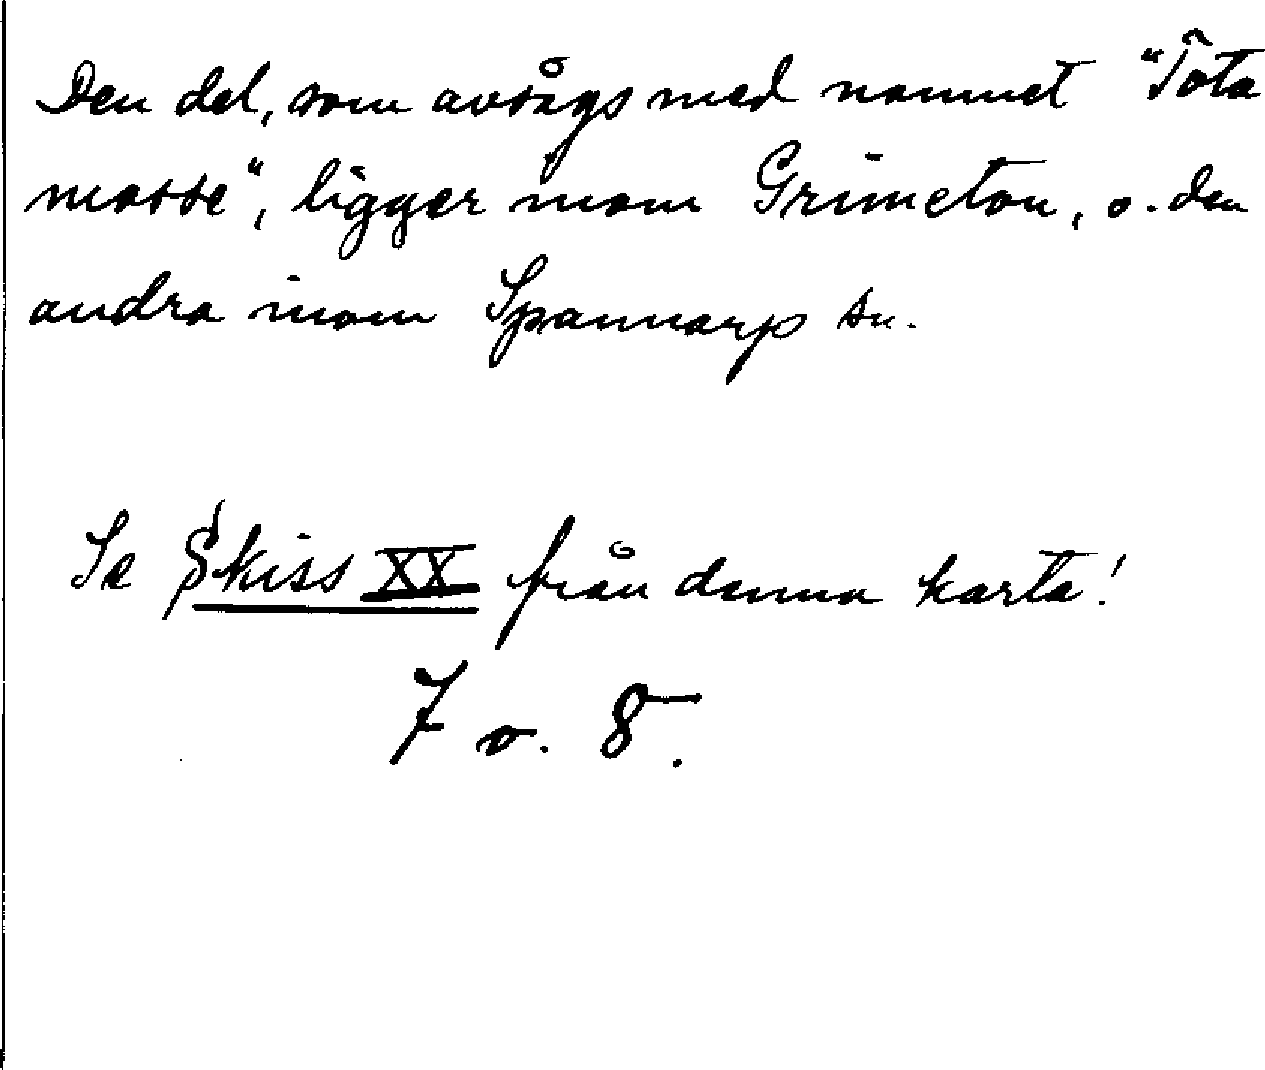 Den del, som avsågs med namnet "Töta
mosse", ligger inom Grimeton, o. den
andra inom Spannarp sn.
Se Skiss XX från denna karta!
7 o. 8.